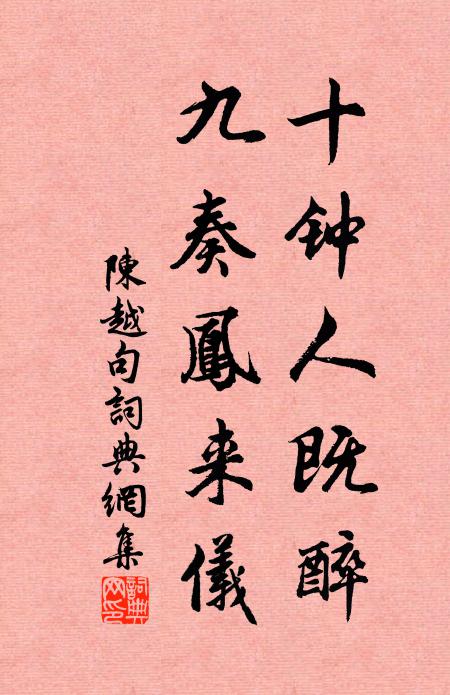 十钟人既醉
九奏鳳来儀
陳越句詞典網集
詞典网印